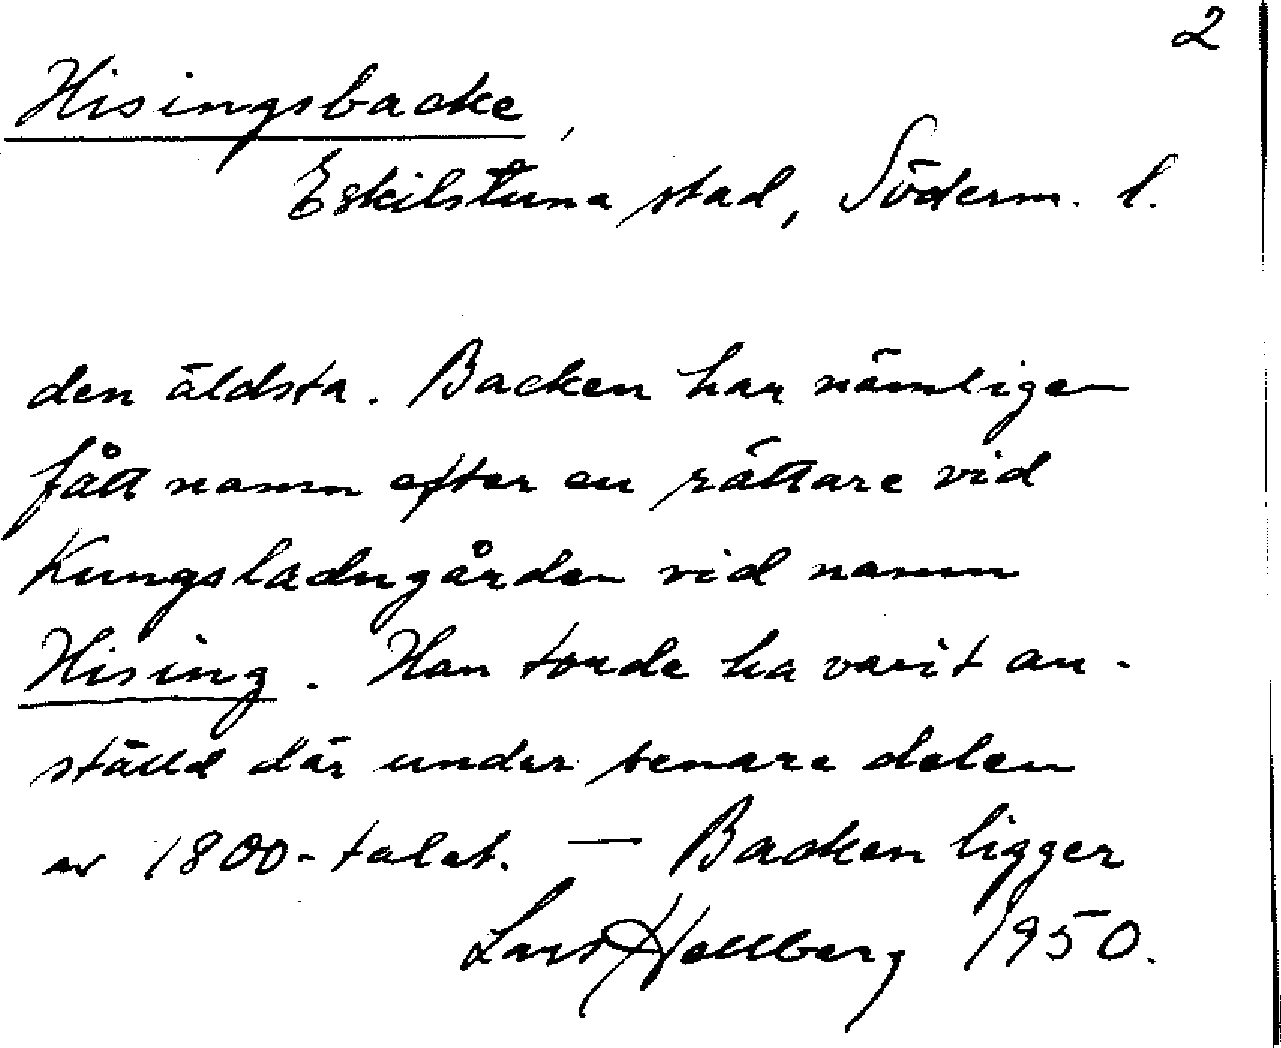 2
Hisingsbacke,
Eskilstuna stad, Söderm. l.
den äldsta. Backen har nämligen
fått namn efter en rättare vid
Kungsladugården vid namn
Hising. Han torde ha varit an-
ställd där under senare delen
av 1800-talet. — Backen ligger
Lars Hellberg 1950.